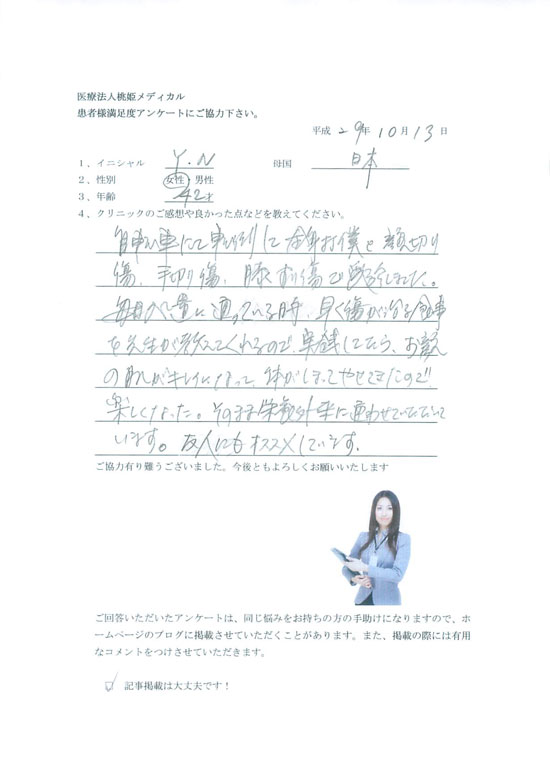 医療法人桃姫メディカル
患者様満足度アンケートにご協力下さい。
平成 29年 10月 13日
1、イニシャル Y.N 母国 日本
2、性別 女性・男性
3、年齢 42才
4、クリニックのご感想や良かった点などを教えてください。
自転車にて 転倒して 全身打僕と 額切り
傷、手切り傷、膝すり傷で受診しました。
毎日 に通っている時、早く傷が 食事
を先生が教えてくれるので、実践してたら、お
の肌がキレイになって、体が やせてきたので
楽しくなった。そのまま栄養外来に通わせていただいて
います。友人にもオススメしています。
ご協力有り難うございました。今後ともよろしくお願いいたします
ご回答いただいたアンケートは、同じ悩みをお持ちの方の手助けになりますので、ホ
ームページのブログに掲載させていただくことがあります。また、掲載の際には有用
なコメントをつけさせていただきます。
記事掲載は大丈夫です！